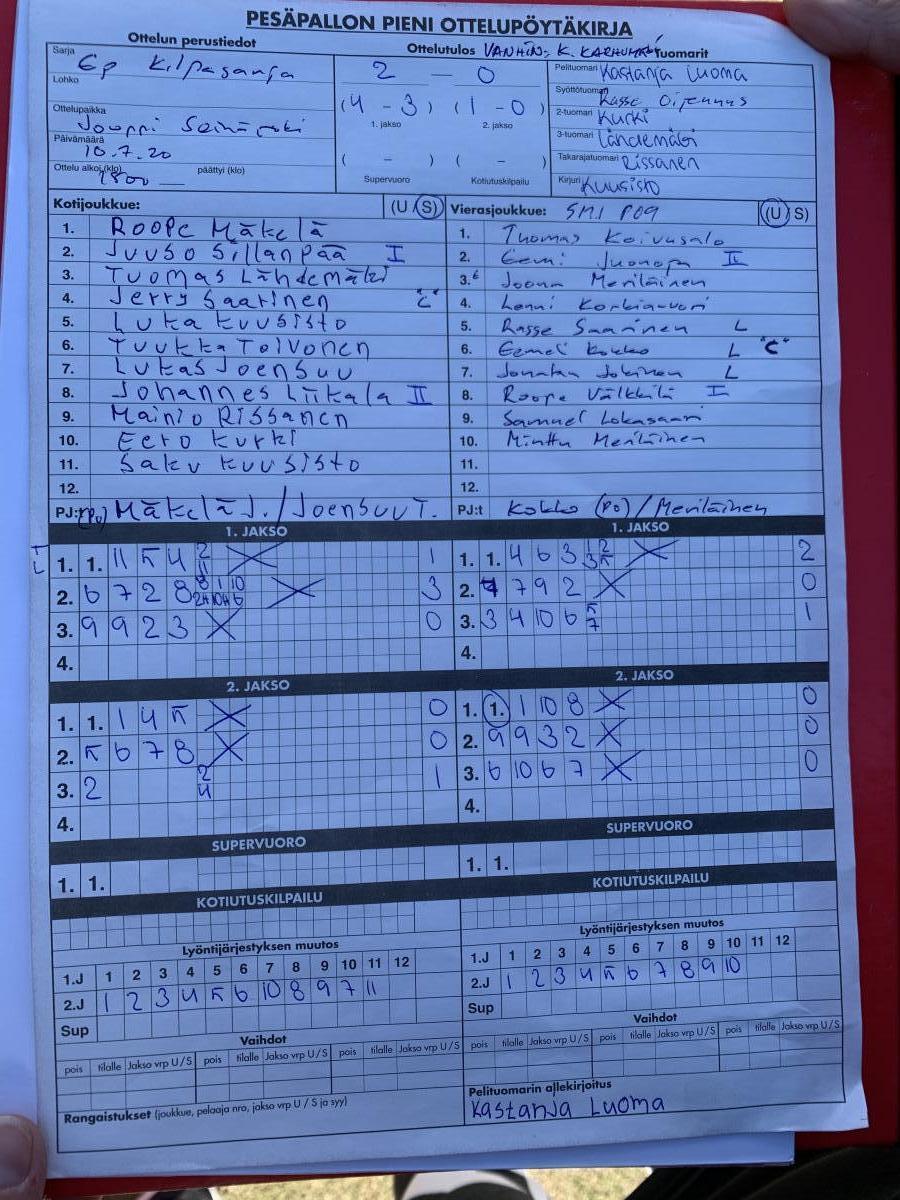 PESÄPALLON PIENI OTTELUPÖYTÄKIRJA
Ottelun perustiedot
Ottelutulos VANHIN: K. KARHUMÄKI Tuomarit
Sarja Ep Kilpasarja
Lohko
Ottelupaikka Jouppi Seinäjoki
Päivämäärä 10.7.20
Ottelu alkoi (klo) 1800 päättyi (klo)
2 - 0
(4 - 3) (1 - 0)
1. jakso 2. jakso
( - ) ( - )
Supervuoro Kotiutuskilpailu
Pelituomari Kastanja Luoma
Syöttötuomari Lasse
2-tuomari Kurki
3-tuomari Lähdemäki
Takarajatuomari Rissanen
Kirjuri Kuusisto
Kotijoukkue: (U S)
1. Roope Mäkelä
2. Juuso Sillanpää I
3. Tuomas Lähdemäki
4. Jerry Saarinen "C"
5. Luka Kuusisto
6. Tuukka Toivonen
7. Lukas Joensuu
8. Johannes Liikala II
9. Mainio Rissanen
10. Eero Kurki
11. Saku Kuusisto
12.
PJ:t (PO) Mäkelä J. / Joensuu T.
Vierasjoukkue: SMJ P09 (U S)
1. Thomas Koivusalo
2. Eemi Juonopa II
3. Joona Meriläinen
4. Lenni Korkiavuori
5. Rasse Saarinen L
6. Eemeli Kokko L "C"
7. Jonatan Jokinen L
8. Roope Välkkilä I
9. Samuel Lokasaari
10. Minttu Meriläinen
11.
12.
PJ:t Kokko (PO) / Meriläinen
1. JAKSO
T L 1. 1. 11 5 4 2 11 X 1
2. 6 7 2 8 8 1 10 2 4 10 4 6 X 3
3. 9 9 2 3 X 0
4.
1. JAKSO
1. 1. 4 6 3 1 2 3 5 X 2
2. 7 7 9 2 X 0
3. 3 4 10 6 5 7 1
4.
2. JAKSO
1. 1. 1 4 5 X 0
2. 5 6 7 8 X 0
3. 2 2 4 1
4.
2. JAKSO
1. 1. 1 10 8 X 0
2. 9 9 3 2 X 0
3. 6 10 6 7 X 0
4.
SUPERVUORO
1. 1.
SUPERVUORO
1. 1.
KOTIUTUSKILPAILU
KOTIUTUSKILPAILU
Lyöntijärjestyksen muutos
1.J 1 2 3 4 5 6 7 8 9 10 11 12
2.J 1 2 3 4 5 6 10 8 9 7 11
Sup
Vaihdot
pois tilalle Jakso vrp U / S pois tilalle Jakso vrp U / S pois tilalle Jakso vrp U / S
Rangaistukset (joukkue, pelaaja nro, jakso vrp U / S ja syy)
Lyöntijärjestyksen muutos
1.J 1 2 3 4 5 6 7 8 9 10 11 12
2.J 1 2 3 4 5 6 7 8 9 10
Sup
Vaihdot
pois tilalle Jakso vrp U / S pois tilalle Jakso vrp U / S pois tilalle Jakso vrp U / S
Pelituomarin allekirjoitus
Kastanja Luoma